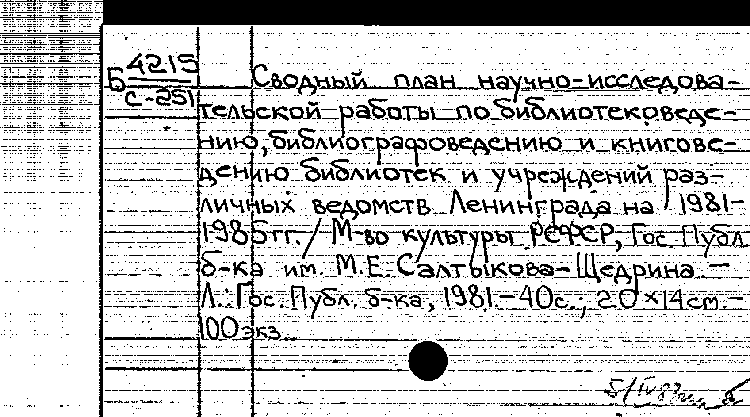 Б 4215
с-251
Сводный план научно-исследова-
тельской работы по библиотековеде-
нию, библиографоведению и книгове-
дению библиотек и учреждений раз-
личных ведомств Ленинграда на 1981-
1985 гг. / М-во культуры РСФСР, Гос. Публ
б-ка им. М.Е. Салтыкова-Щедрина. —
Л.: Гос. Публ. б-ка, 1981. - 40с.; 20×14см. -
100 экз.